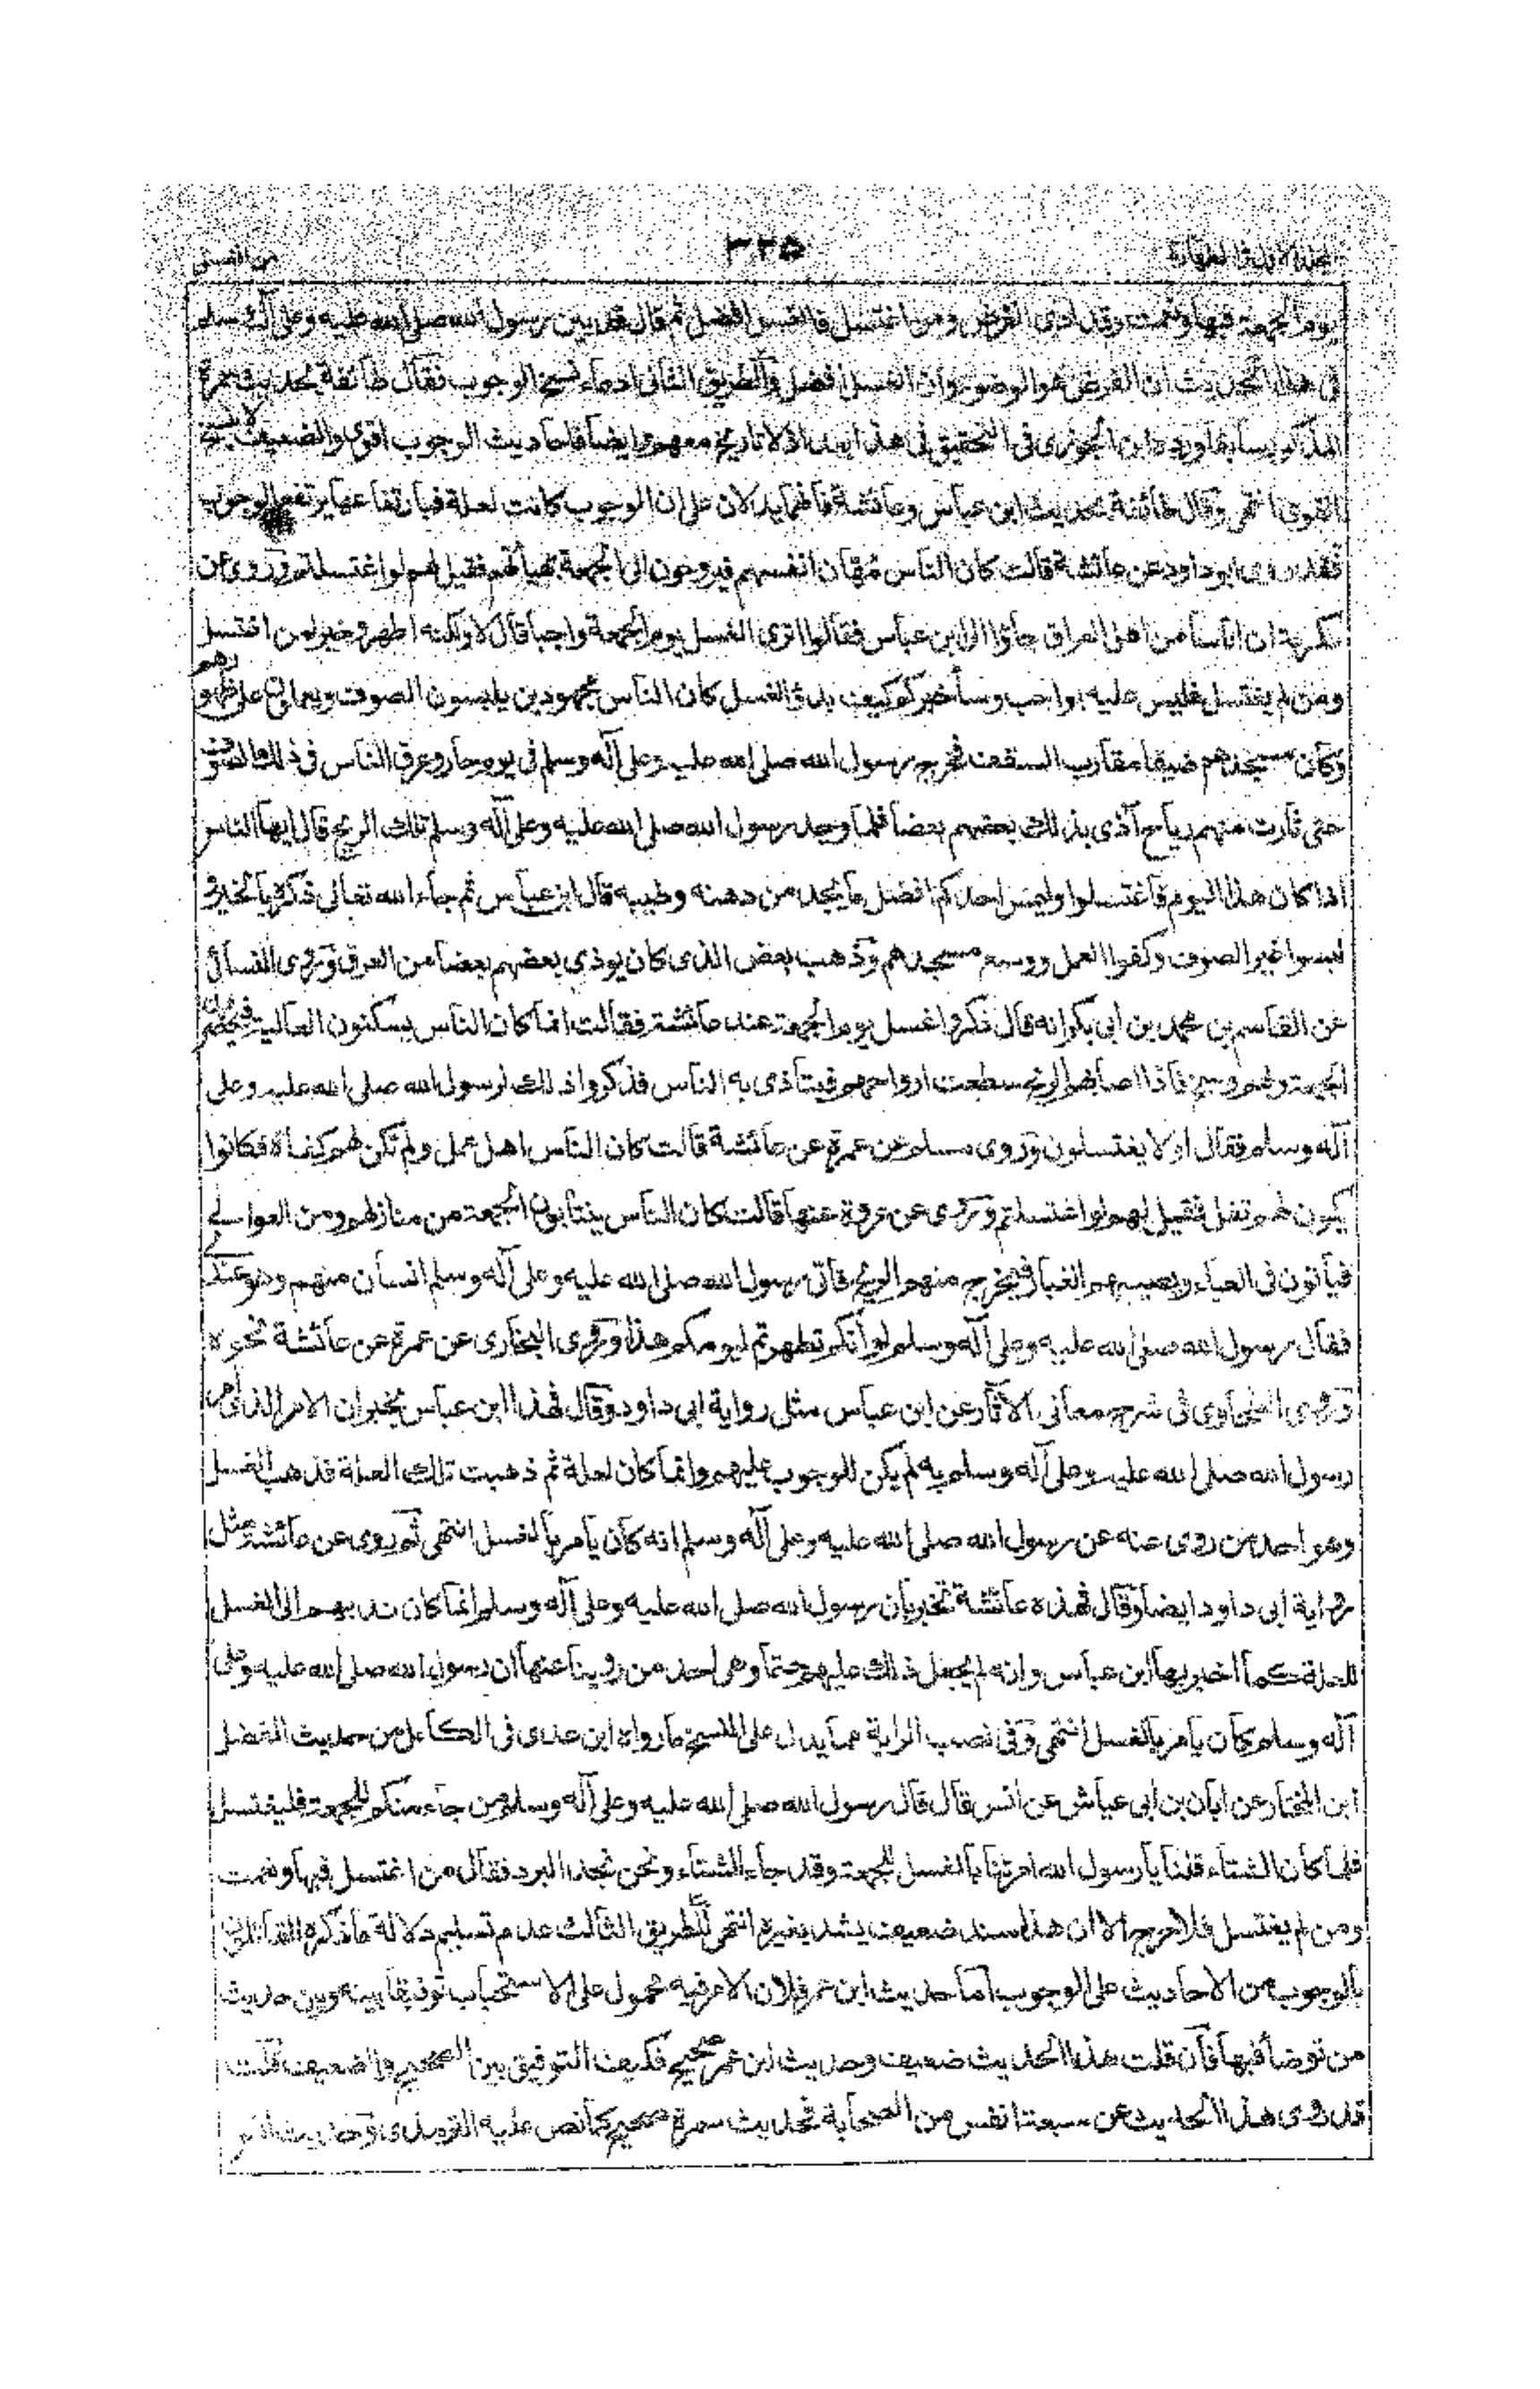 ٣٢٥
يوم الجمعة فبها ونعمت وقد ادى الفرض ومن اغتسل فالغسل افضل ثم قال فقد بين رسول الله صلى الله عليه وعلى آله وسلم
فى هذا الحديث ان الفرض هو الوضوء وان الغسل افضل والطريق الثانى ادعاء نسخ الوجوب فقال طائفة بحديث سمرة
المذكور سابقا ورده ابن الجوزى فى التحقيق فى هذا بعد اذ لا تاريخ معهم وايضا فاحاديث الوجوب اقوى والضعيف لا ينسخ
القوى انتهى وقال طائفة بحديث ابن عباس وعائشة فانهما يدلان على ان الوجوب كانت لعلة فبارتفاعها يرتفع الوجوب
فقد روى ابو داود عن عائشة قالت كان الناس مُهّان انفسهم فيروحون الى الجمعة بهيأتهم فقيل لهم لو اغتسلتم وروى عن
عكرمة ان اناسا من اهل العراق جاؤا الى ابن عباس فقالوا اترى الغسل يوم الجمعة واجبا قال لا ولكنه اطهر وخير لمن اغتسل
ومن لم يغتسل فليس عليه بواجب وسأخبركم كيف بدؤ الغسل كان الناس مجهودين يلبسون الصوف ويعملون على ظهورهم
وكان مسجدهم ضيقا مقارب السقف فخرج رسول الله صلى الله عليه وعلى آله وسلم فى يوم حار وعرق الناس فى ذلك الصوف
حتى ثارت منهم رياح آذى بذلك بعضهم بعضا فلما وجد رسول الله صلى الله عليه وعلى آله وسلم تلك الريح قال ايها الناس
اذا كان هذا اليوم فاغتسلوا وليمس احدكم افضل ما يجد من دهنه وطيبه قال ابن عباس ثم جاء الله تعالى ذكره بالخير و
لبسوا غير الصوف وكفوا العمل ووسع مسجدهم وذهب بعض الذى كان يوذي بعضهم بعضا من العرق وروى النسائى
عن القاسم بن محمد بن ابى بكر انه قال ذكروا غسل يوم الجمعة عند عائشة فقالت انما كان الناس يسكنون العالية فيحضرون
الجمعة وبهم وسخ فاذا اصابهم الروح سطعت ارواحهم فيتأذى به الناس فذكروا ذلك لرسول الله صلى الله عليه وعلى
آله وسلم فقال او لا يغتسلون وروى مسلم عن عمرة عن عائشة قالت كان الناس اهل عمل ولم تكن لهم كفاة فكانوا
يكون لهم تفل فقيل لهم لو اغتسلتم وروى عن عروة عنها قالت كان الناس ينتابون الجمعة من منازلهم ومن العوالى
فيأتون فى العباء ويصيبهم الغبار فيخرج منهم الريح فاتى رسول الله صلى الله عليه وعلى آله وسلم انسان منهم وهو عندى
فقال رسول الله صلى الله عليه وعلى آله وسلم لو انكم تطهرتم ليومكم هذا وروى البخارى عن عمرة عن عائشة نحوه
وروى الطحاوى فى شرح معانى الآثار عن ابن عباس مثل رواية ابى داود وقال فهذا ابن عباس يخبر ان الامر الذى امر
رسول الله صلى الله عليه وعلى آله وسلم به لم يكن للوجوب عليهم وانما كان لعلة ثم ذهبت تلك العلة فذهب الغسل
وهو احد من روى عنه عن رسول الله صلى الله عليه وعلى آله وسلم انه كان يأمر بالغسل انتهى ثم روى عن عائشة مثل
رواية ابى داود ايضا وقال فهذه عائشة تخبر بان رسول الله صلى الله عليه وعلى آله وسلم انما كان ندبهم الى الغسل
للعلة كما اخبر بها ابن عباس وانه لم يجعل ذلك عليهم حتما وهى احد من روينا عنها ان رسول الله صلى الله عليه وعلى
آله وسلم كان يأمر بالغسل انتهى وفى نصب الراية مما يدل على النسخ ما رواه ابن عدى فى الكامل من حديث الفضل
ابن المختار عن ابان بن ابى عياش عن انس قال قال رسول الله صلى الله عليه وعلى آله وسلم من جاء منكم للجمعة فليغتسل
فلما كان الشتاء قلنا يا رسول الله امرتنا بالغسل للجمعة وقد جاء الشتاء ونحن نجد البرد فقال من اغتسل فبها ونعمت
ومن لم يغتسل فلا حرج الا ان هذا سند ضعيف يشد بغيره انتهى الطريق الثالث عدم تسليم دلالة ما ذكره القائلون
بالوجوب من الاحاديث على الوجوب اما حديث ابن عمر فلان الامر فيه محمول على الاستحباب توفيقا بينه وبين حديث
من توضأ فبها فان قلت هذا الحديث ضعيف وحديث ابن عمر صحيح فكيف التوفيق بين الصحيح والضعيف قلت
قد روى هذا الحديث عن سبعة انفس من الصحابة فحديث سمرة صحيح كما نص عليه الترمذى وحديث انس